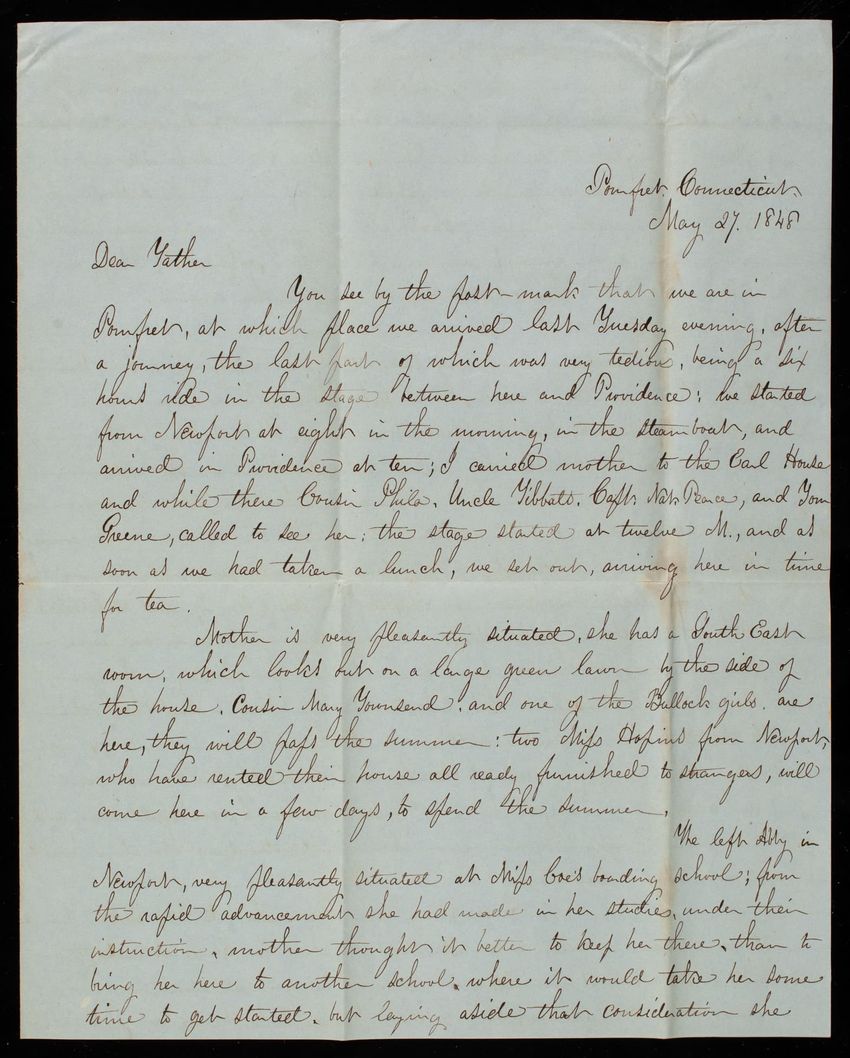 Pomfret. Connecticut.
May 27. 1848
Dear Father
You see by the post-mark that we are in
Pomfret, at which place we arrived last Tuesday evening, after
a journey, the last part of which was very tedious, being a six
hours ride in the stage between here and Providence; we started
from Newport at eight in the morning, in the steamboat, and
arrived in Providence at ten; I carried mother to the Earl House
and while there Cousin Phila, Uncle Tibbats, Capt. Nat. Pearce, and Tom
Greene, called to see her; the stage started at twelve M., and as
soon as we had taken a lunch, we set out, arriving here in time
for tea.
Mother is very pleasantly situated, she has a South East
room, which looks out on a large green lawn by the side of
the house. Cousin Mary Townsend, and one of the Bullock girls, are
here, they will pass the summer; two Miss Hopins from Newport,
who have rented their house all ready furnished to strangers, will
come here in a few days, to spend the summer.
We left Abby in
Newport, very pleasantly situated at Miss Coe's boarding school; from
the rapid advancement she had made in her studies, under their
instruction, mother thought it better to keep her there, than to
bring her here to another school, where it would take her some
time to get started, but laying aside that consideration she